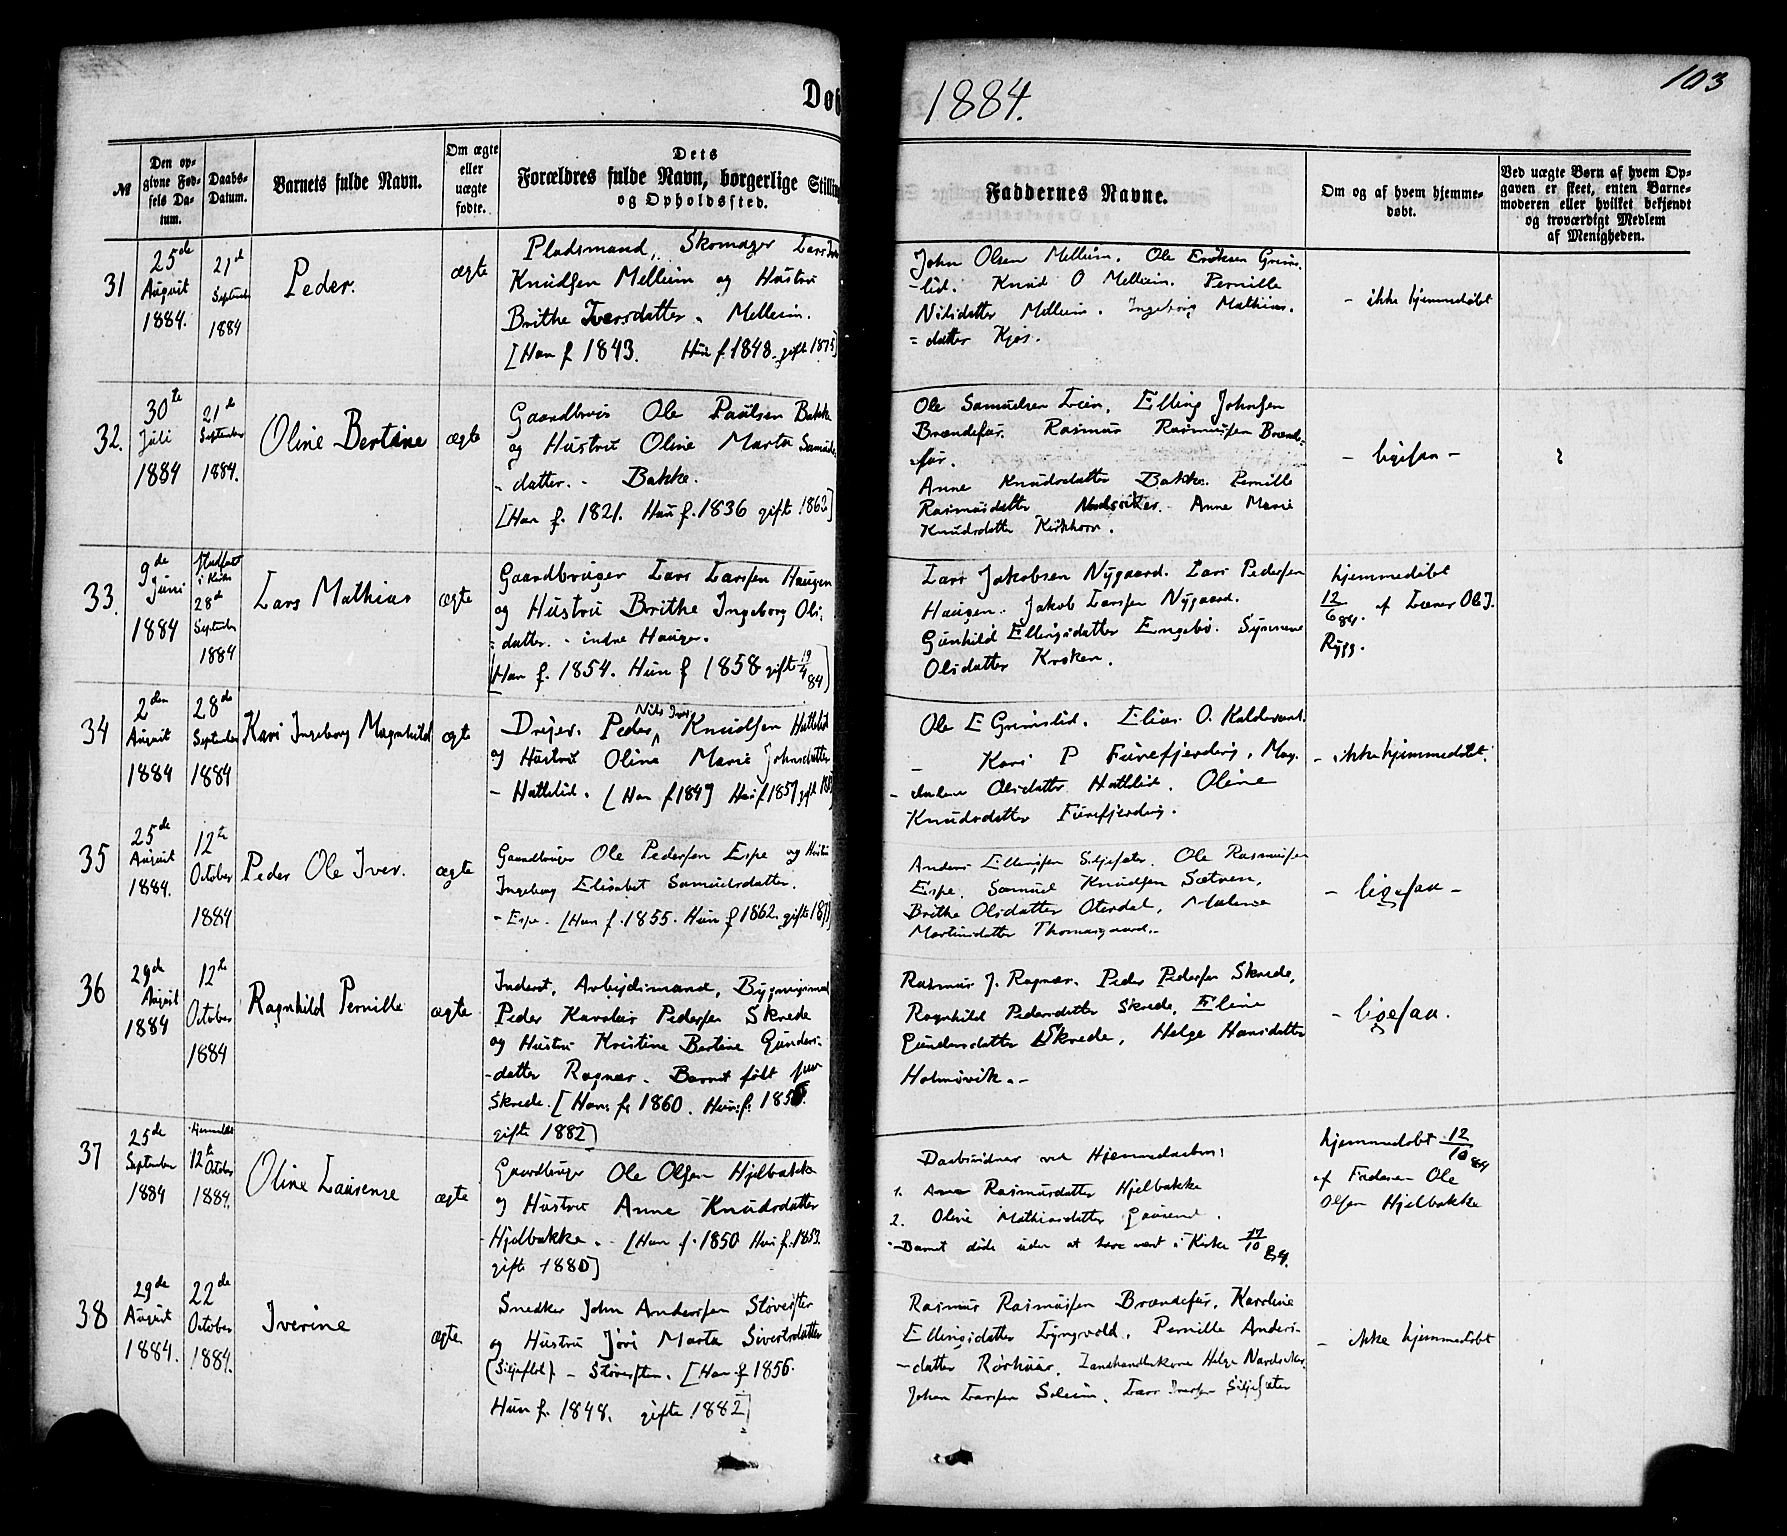 Døb
1884.
103
№
Den op-
givne Fød-
sels Da-
tum.
Daabs-
Datum.
Barnets fulde Navn.
Om ægte
eller
uægte
fødte.
Dets
Forældres fulde Navn, borgerlige Stillin
og Opholdssted.
Faddernes Navne.
Om og af hvem hjemme-
døbt.
Ved uægte Børn af hvem Op-
gaven er skeet, enten Barne-
moderen eller hvilket bekjendt
og troværdigt Medlem
af Menigheden.
31
25de
August
1884.
21de
September
1884
Peder.
ægte
Pladsmand, Skomager Lars
Knudsen Melheim og Hustru
Brithe Iversdatter. Melheim.
[Han f 1843. Hun f. 1848. gift 1875]
John Olsen Melheim. Ole Eriksen Grims-
-lid. Knud O Melheim. Pernille
Nilsdatter Melheim. Ingeborg Mathias-
= datter Kjøs.
- ikke hjemmedøbt
32.
30te
Juli
1884
21de
September
1884.
Oline Bertine
ægte
Gaardbrug Ole Paulsen Bakke
og Hustru Oline Marta Samuels-
- datter. - Bakke.
[Han f. 1821. Hun f. 1836 gift 1862]
Ole Samuelsen Lien, Elling Johnsen
Brændefur. Rasmus Rasmussen Brænde-
-fur.
Anne Knudsdatter Bakke. Pernille
Rasmusdatter Anne Marie
Knudsdatter Kirkhorn.
- ligesaa -
33.
9de
Juni
1884
Stadfæst
i Kirke
28de
September
1884
Lars Mathias
ægte
Gaardbruger Lars Larssen Haugen
og Hustru Brithe Ingeborg Ols-
= datter. - indre Haugen.
[Han f. 1854. Hun f 1858 gift 19/4 84]
Lars Jakobsen Nygaard. Lars Pedersen
Haugen. Jakob Larssen Nygaard.
Gunhild Ellingsdatter Engebø. Synneve
Olsdatter Kroken.
hjemmedøbt
12/6 84. af Lærer Ole J.
Rygg.
34
2den
August
1884
28de
September
1884
Kari Ingeborg Magnhild
ægte
Nils Iver
Drejer. Peder Knudsen Hatlelid
og Hustru Oline Marie Johnsdatter
- Hatlelid. [Han f 1849 Hun f 1857 gift
Ole E Grimslid. Elias O. Kaldevant.
- Kari P Furefjerding, Mag-
- dalene Olsdatter Hatlelid. Oline
Knudsdatter Furefjerding.
- ikke hjemmedøbt.
35
25de
August
1884.
12te
October
1884
Peder Ole Iver.
ægte
Gaardbruger Ole Pedersen Espe og Hustru
Ingeborg Elisabet Samuelsdatter.
- Espe. [Han f. 1855. Hun f. 1862. gifte
Anders Ellingsen Siljesæter. Ole Rasmussen
Espe. Samuel Knudsen Sætren,
Brithe Olsdatter Oterdal, Malene
Martinsdatter Thomasgaard.-
- ligesaa -
36
29de
August
1884
12te
October
1884
Ragnhild Pernille
ægte
Inderst, Arbejdsmand, Bygningsmand
Peder Karolus Pedersen Skrede
og Hustru Kristine Bertine Gunders-
-datter Rognær. Barnet født paa
Skrede. [Han f. 1860. Hun f. 1856.
gifte 1882]
Rasmus J. Rognær. Peder Pedersen Skrede,
Ragnhild Pedersdatter Skrede, Eline
Gundersdatter Skrede, Helge Hansdatter
Holmövik. -
- ligesaa.
37
25de
September
1884
hjemmedøbt
12te October
1884.
Oline Laurense
ægte
Gaardbruger Ole Olsen Hjelbakke
og Hustru Anne Knudsdatter
Hjelbakke. - [Han f. 1850 Hun f. 1853.
gifte 1880]
Daabsvidner ved Hjemmedaaben:
1. Ane Rasmusdatter Hjelbakke
2. Oline Mathiasdatter
-Barnet døde uden at have været i Kirke 17/10 84.
hjemmedøbt 12/10 84
af Faderen Ole
Olsen Hjelbakke
38
29de
August
1884.
22de
October
1884.
Iverine
ægte
Snedker John Anderssen Støversten
og Hustru Jøri Marta Sivertsdatter
(Siljeflot). - Støversten. [Han f 1856.
Hun f. 1848. gifte 1882]
Rasmus Rasmussen Brændefur. Karoline
Ellingsdatter Lyngvold. Pernille Anders-
-datter Rørhuus, Landhandlerkone Helge
Johan Larssen Soleim. Lars Iversen Siljesæter
- ikke hjemmedøbt